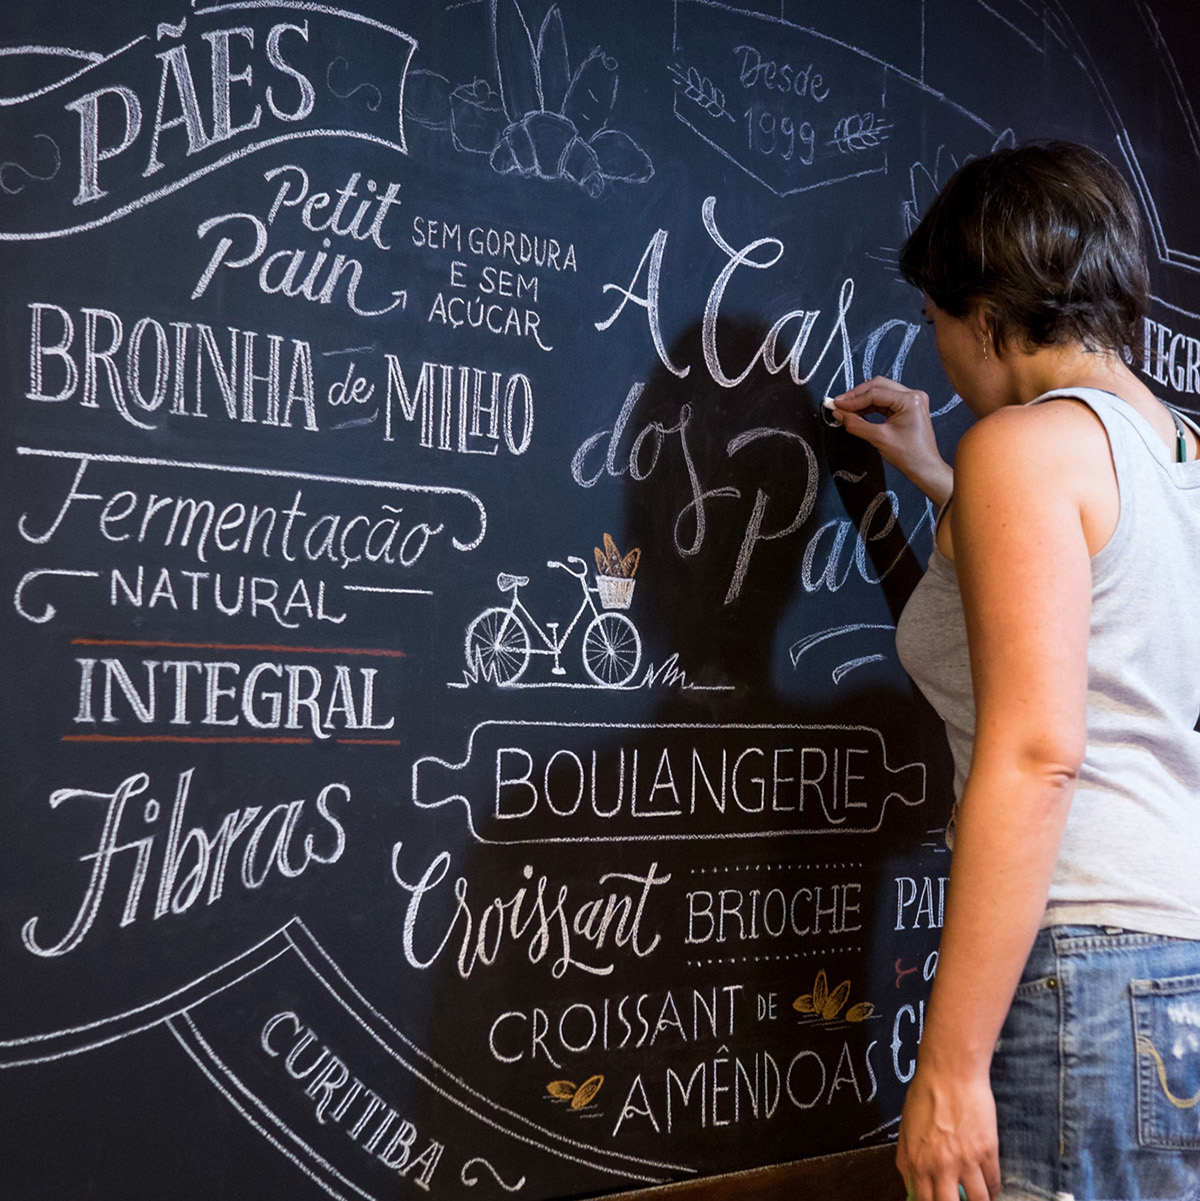 PÃES
Petit
Pain
SEM GORDURA
E SEM
AÇÚCAR
BROINHA de MILHO
Fermentação
NATURAL
INTEGRAL
Fibras
CURITIBA
Desde
1999
A Casa
dos Pães
BOULANGERIE
Croissant BRIOCHE
CROISSANT DE
AMÊNDOAS